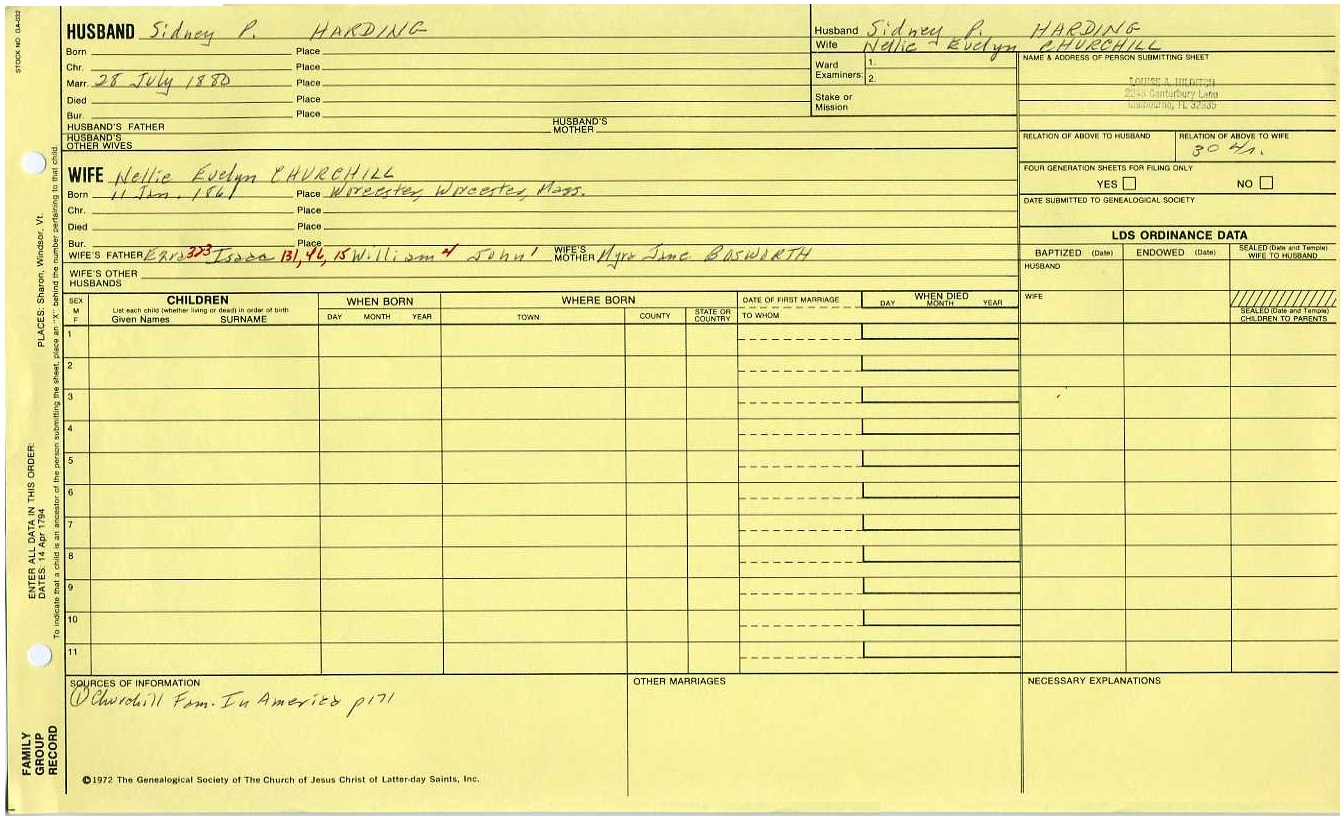 STOCK NO. GA-032
HUSBAND Sidney P. HARDING
Born Place
Chr. Place
Marr. 28 July 1880 Place
Died Place
Bur. Place
HUSBAND'S FATHER HUSBAND'S MOTHER
HUSBAND'S OTHER WIVES
Husband Sidney P. HARDING
Wife Nellie Evelyn CHURCHILL
Ward Examiners: 1.
2.
Stake or Mission
NAME & ADDRESS OF PERSON SUBMITTING SHEET
LOUISE A. HILDITCH
Canterbury Lane
Melbourne, FL 32935
RELATION OF ABOVE TO HUSBAND RELATION OF ABOVE TO WIFE
FOUR GENERATION SHEETS FOR FILING ONLY
YES NO
DATE SUBMITTED TO GENEALOGICAL SOCIETY
WIFE Nellie Evelyn CHURCHILL
Born 11 Jan. 1861 Place Worcester, Worcester, Mass.
Chr. Place
Died Place
Bur. Place
WIFE'S FATHER Ezra 323 Isaac 131, 46, 15 William 4 John 1 WIFE'S MOTHER Myra Jane BOSWORTH
WIFE'S OTHER HUSBANDS
LDS ORDINANCE DATA
BAPTIZED (Date) ENDOWED (Date) SEALED (Date and Temple) WIFE TO HUSBAND
HUSBAND
WIFE
SEALED (Date and Temple) CHILDREN TO PARENTS
SEX M F
CHILDREN
List each child (whether living or dead) in order of birth
Given Names SURNAME
WHEN BORN
DAY MONTH YEAR
WHERE BORN
TOWN COUNTY STATE OR COUNTRY
DATE OF FIRST MARRIAGE
TO WHOM
WHEN DIED
DAY MONTH YEAR
1
2
3
4
5
6
7
8
9
10
11
SOURCES OF INFORMATION
① Churchill Fam. In America p171
OTHER MARRIAGES
NECESSARY EXPLANATIONS
©1972 The Genealogical Society of The Church of Jesus Christ of Latter-day Saints, Inc.
FAMILY GROUP RECORD
ENTER ALL DATA IN THIS ORDER:
DATES: 14 Apr 1794 PLACES: Sharon, Windsor, Vt.
To indicate that a child is an ancestor of the person submitting the sheet, place an "X" behind the number pertaining to that child.